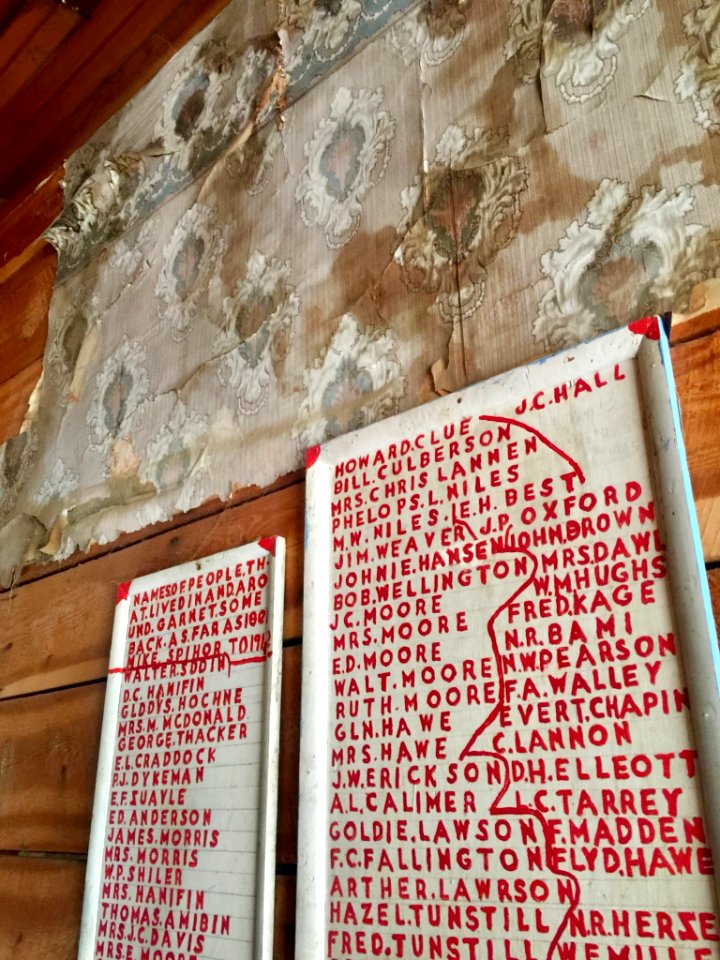 NAMES OF PEOPLE, TH
AT, LIVED IN AND, ARO
UND. GARNET, SOME
BACK. A.S. FAR AS
MIKE SPIHOR TO
WALTER. SUDIN
D.C. HANIFIN
GLDDYS. HOCHNE
MRS. M. MCDONALD
GEORGE. THACKER
E.L. CRADDOCK
P.J. DYKEMAN
E.F. ZUAYLE
ED. ANDERSON
JAMES. MORRIS
MRS. MORRIS
W.P. SHILER
MRS. HANIFIN
THOMAS. AMIBIN
MRS. J.C. DAVIS
MRS. E. MOORE
J.C. HALL
HOWARD. CLUE
BILL. CULBERSON
MRS. CHRIS LANNEN
PHELOPS. L. NILES
M.W. NILES. E.H. BEST
JIM. WEAVER J.P. OXFORD
JOHNIE. HANSEN JOHN. BROWN
BOB. WELLINGTON MRS. DAWL
J.C. MOORE W.M HUGHS
MRS. MOORE FRED. KAGE
E.D. MOORE N.R. BAMI
WALT. MOORE N.W. PEARSON
RUTH. MOORE F.A. WALLEY
GLN. HAWE EVERT. CHAPIN
MRS. HAWE C. LANNON
J.W. ERICKSON D.H. ELLEOTT
A.L. CALIMER L.C. TARREY
GOLDIE. LAWSON F. MADDEN
F.C. FALLINGTON FLYD. HAWE
ARTHER. LAWRSON
HAZEL. TUNSTILL N.R. HERSE
FRED. TUNSTILL WE MILLE